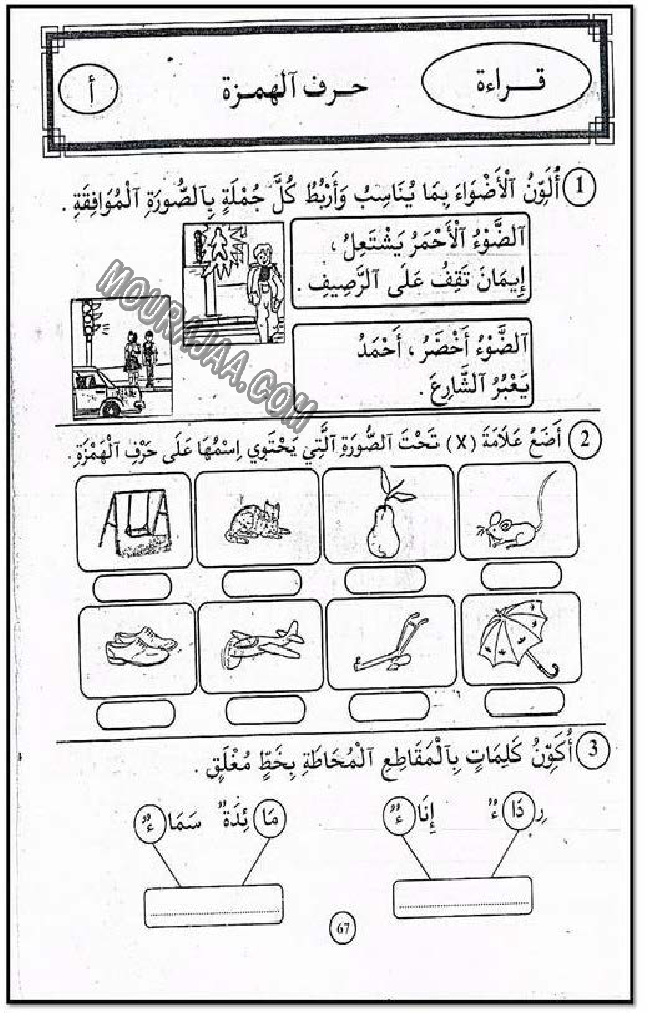 قـــراءة
حـرف ٱلهمـزة
أ
1 أُلَوِّنُ ٱلْأَضْوَاءَ بِمَا يُنَاسِبُ وَأَرْبُطُ كُلَّ جُمْلَةٍ بِٱلصُّورَةِ ٱلْمُوَافِقَةِ .
ٱلضَّوْءُ ٱلْأَحْمَرُ يَشْتَعِلُ ،
إِيمَانَ تَقِفُ عَلَى ٱلرَّصِيفِ .
ٱلضَّوْءُ أَخْضَرُ ، أَحْمَدُ
يَعْبُرُ ٱلشَّارِعَ .
MOURAJAA.COM
2 أَضَعُ عَلَامَةَ (X) تَحْتَ ٱلصُّورَةِ ٱلَّتِي يَحْتَوِي اِسْمُهَا عَلَى حَرْفِ ٱلْهَمْزَةِ .
3 أُكَوِّنُ كَلِمَاتٍ بِٱلْمَقَاطِعِ ٱلْمُحَاطَةِ بِخَطٍّ مُغْلَقٍ .
رِدَاءٌ إِنَاءٌ مَائِدَةٌ سَمَاءٌ
67